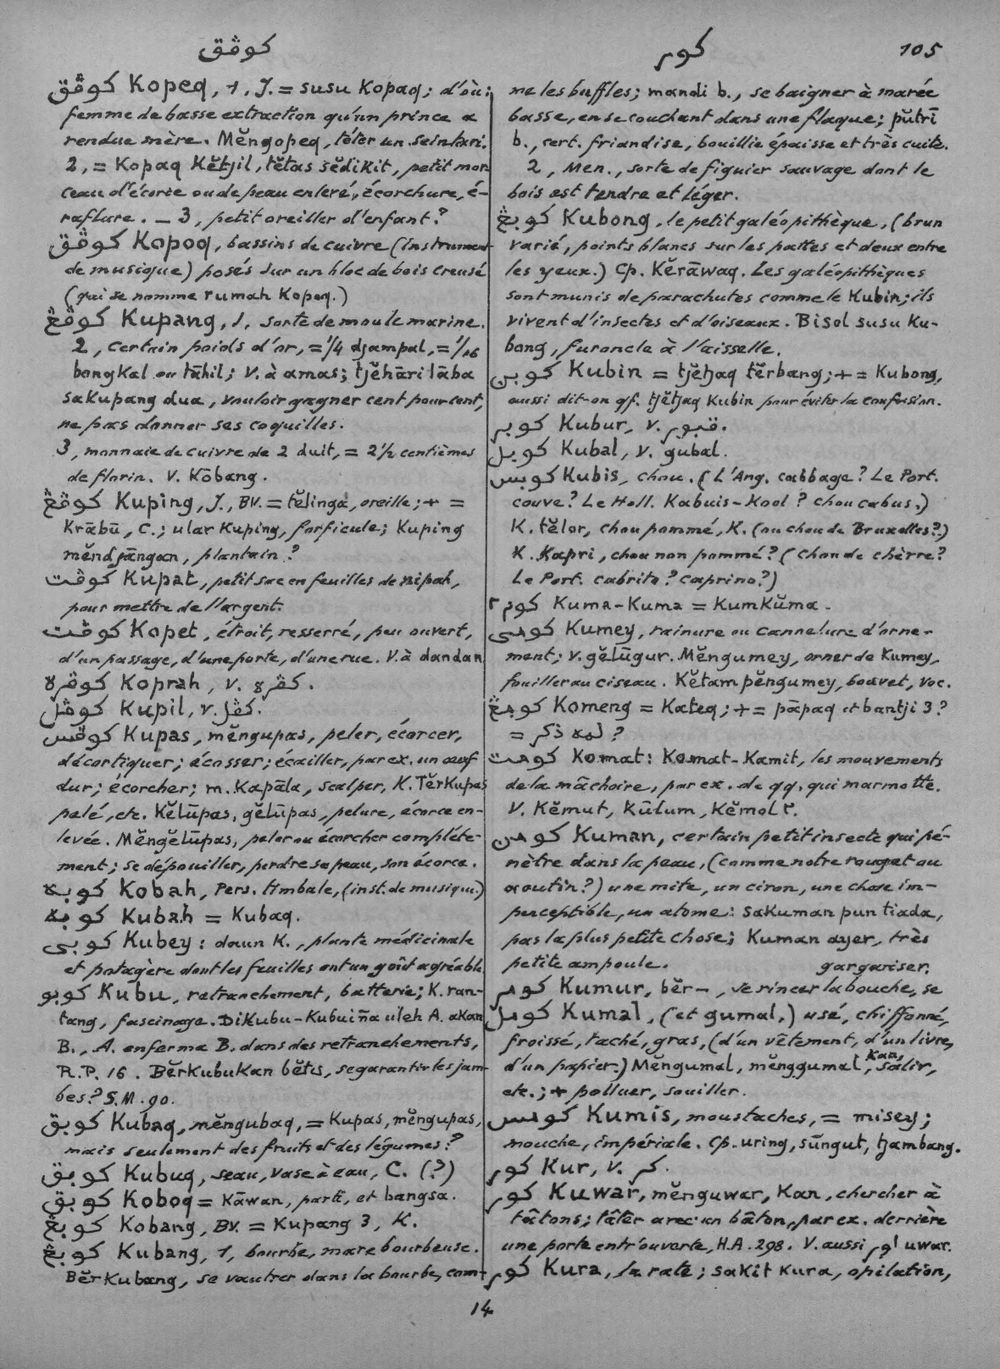 كوڤق
كور
105
كوڤق Kopeq, 1, J. = susu Kopaq; d'où:
femme de basse extraction qu'un prince a
rendue mère. Mĕngopeq, têter un sein tari.
2, = Kopaq Kĕtjil, tĕtas sĕdikit, petit mor
ceau d'écorce ou de peau enlevé, écorchure, é-
raflure. — 3, petit oreiller d'enfant?
كوڤق Kopoq, bassins de cuivre (instrument
de musique) posés sur un bloc de bois creusé
(qui se nomme rumah Kopoq.)
كوڤڠ Kupang, 1, sorte de moule marine.
2, certain poids d'or, = 1/4 djampal, = 1/16
bongkal ou tāhil; V. à amas; tjĕhāri lāba
sakupang dua, vouloir gagner cent pour cent,
ne pas donner ses coquilles.
3, monnaie de cuivre de 2 duit, = 2 1/2 centièmes
de florin. V. Kōbang.
كوڤڠ Kuping, J., BV. = tĕlinga, oreille; + =
Krābū, C.; ular Kuping, forficule; Kuping
mĕndjāngan, plantain?
كوڤت Kupat, petit sac en feuilles de nipah,
pour mettre de l'argent.
كوڤت Kopet, étroit, resserré, peu ouvert,
d'un passage, d'une porte, d'une rue. V. à dandan
كوڤره Koprah, V. كڤره.
كوڤل Kupil, V. كڤل.
كوڤس Kupas, mĕngupas, peler, écorcer,
décortiquer; écosser; écailler, par ex. un œuf
dur; écorcher; m. Kapāla, scalper, K. Tĕrkupas
pelé, etc. Kĕlūpas, gĕlūpas, pelure, écorce en-
levée. Mĕngĕlūpas, peler ou écorcher complète-
ment; se dépouiller, perdre sa peau, son écorce.
كوبه Kobah, Pers. timbale, (inst. de musique.)
كوبه Kubah = Kubaq.
كوبي Kubey: daun K., plante médicinale
et potagère dont les feuilles ont un goût agréable
كوبو Kubu, retranchement, batterie; K. ran-
tang, fascinage. Dikubu-Kubuïña uleh A. akan
B., A. enferma B. dans des retranchements,
R.P. 16. Bĕrkubukan bĕtis, se garantir les jam-
bes? S.M. 90.
كوبق Kubaq, mĕngubaq, = Kupas, mĕngupas,
mais seulement des fruits et des légumes?
كوبق Kubuq, seau, vase à eau, C. (?)
كوبق Koboq = Kāwan, parti, et bangsa.
كوبڠ Kobang, BV. = Kupang 3, K.
كوبڠ Kubang, 1, bourbe, mare bourbeuse.
Bĕrkubang, se vautrer dans la bourbe, com-
me les buffles; mandi b., se baigner à marée
basse, en se couchant dans une flaque; pŭtrī
b., cert. friandise, bouillie épaisse et très cuite.
2, Men., sorte de figuier sauvage dont le
bois est tendre et léger.
كوبڠ Kubong, le petit galéopithèque, (brun
varié, points blancs sur les pattes et deux entre
les yeux.) Cp. Kĕrāwaq. Les galéopithèques
sont munis de parachutes comme le Kubin; ils
vivent d'insectes et d'oiseaux. Bisol susu Ku-
bong, furoncle à l'aisselle.
كوبن Kubin = tjĕtjaq tĕrbang; + = Kubong,
aussi dit-on qf. tjĕtjaq Kubin pour éviter la confusion.
كوبر Kubur, V. قبور.
كوبل Kubal, V. gubal.
كوبس Kubis, chou. (L'Ang. cabbage? Le Port.
couve? Le Holl. Kabuis-Kool? chou cabus.)
K. tĕlor, chou pommé, K. (ou chou de Bruxelles?)
K. Kapri, chou non pommé? (chou de chèvre?
Le Port. cabrito? caprino?)
كوم٢ Kuma-Kuma = Kumkŭma.
كومي Kumey, rainure ou cannelure d'orne-
ment; V. gĕlūgur. Mĕngumey, orner de Kumey,
fouiller au ciseau. Kĕtam pĕngumey, bouvet, Voc.
كومڠ Komeng = Kateq; + = pāpaq et bantji 3?
= لمه ذكر ?
كومت Komat: Komat-Kamit, les mouvements
de la mâchoire, par ex. de qq. qui marmotte.
V. Kĕmut, Kūlum, Kĕmol٢.
كومن Kuman, certain petit insecte qui pé-
nètre dans la peau, (comme notre rouget ou
aoutin?) une mite, un ciron, une chose im-
perceptible, un atome: sakuman pun tiada,
pas la plus petite chose; Kuman ayer, très
petite ampoule. gargariser.
كومر Kumur, bĕr-, se rincer la bouche, se
كومل Kumal, (et gumal,) usé, chiffonné,
froissé, taché, gras, (d'un vêtement, d'un livre,
d'un papier.) Mĕngumal, mĕnggumal, Kan, salir,
etc.; + polluer, souiller.
كومس Kumis, moustaches, = misey;
mouche, impériale. Cp. uring, sūngut, tjambang.
كور Kur, V. كر.
كور Kuwar, mĕnguwar, Kan, chercher à
tâtons; tâter avec un bâton, par ex. derrière
une porte entr'ouverte, H.A. 298. V. aussi اور uwar.
كور Kura, la rate; sakit Kura, opilation,
14